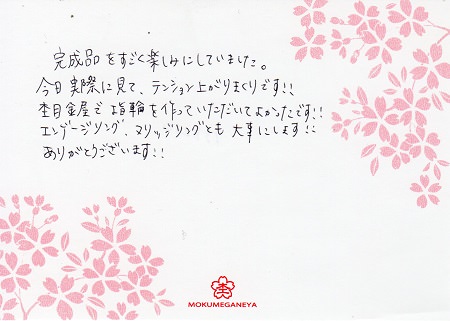 完成品をすごく楽しみにしていました。
今日実際に見て、テンション上がりまくりです!!
杢目金屋で指輪を作っていただいてよかったです!!
エンゲージリング、マリッジリングとも大事にします!!
ありがとうございます!!
杢
MOKUMEGANEYA